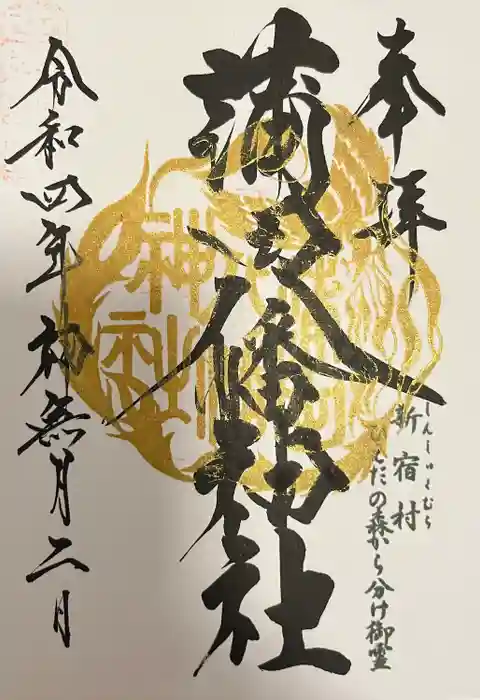 奉拝
しんしゅくむら
新宿村
ひんだの森から分け御霊
蒲田八幡神社
令和四年神無月二日